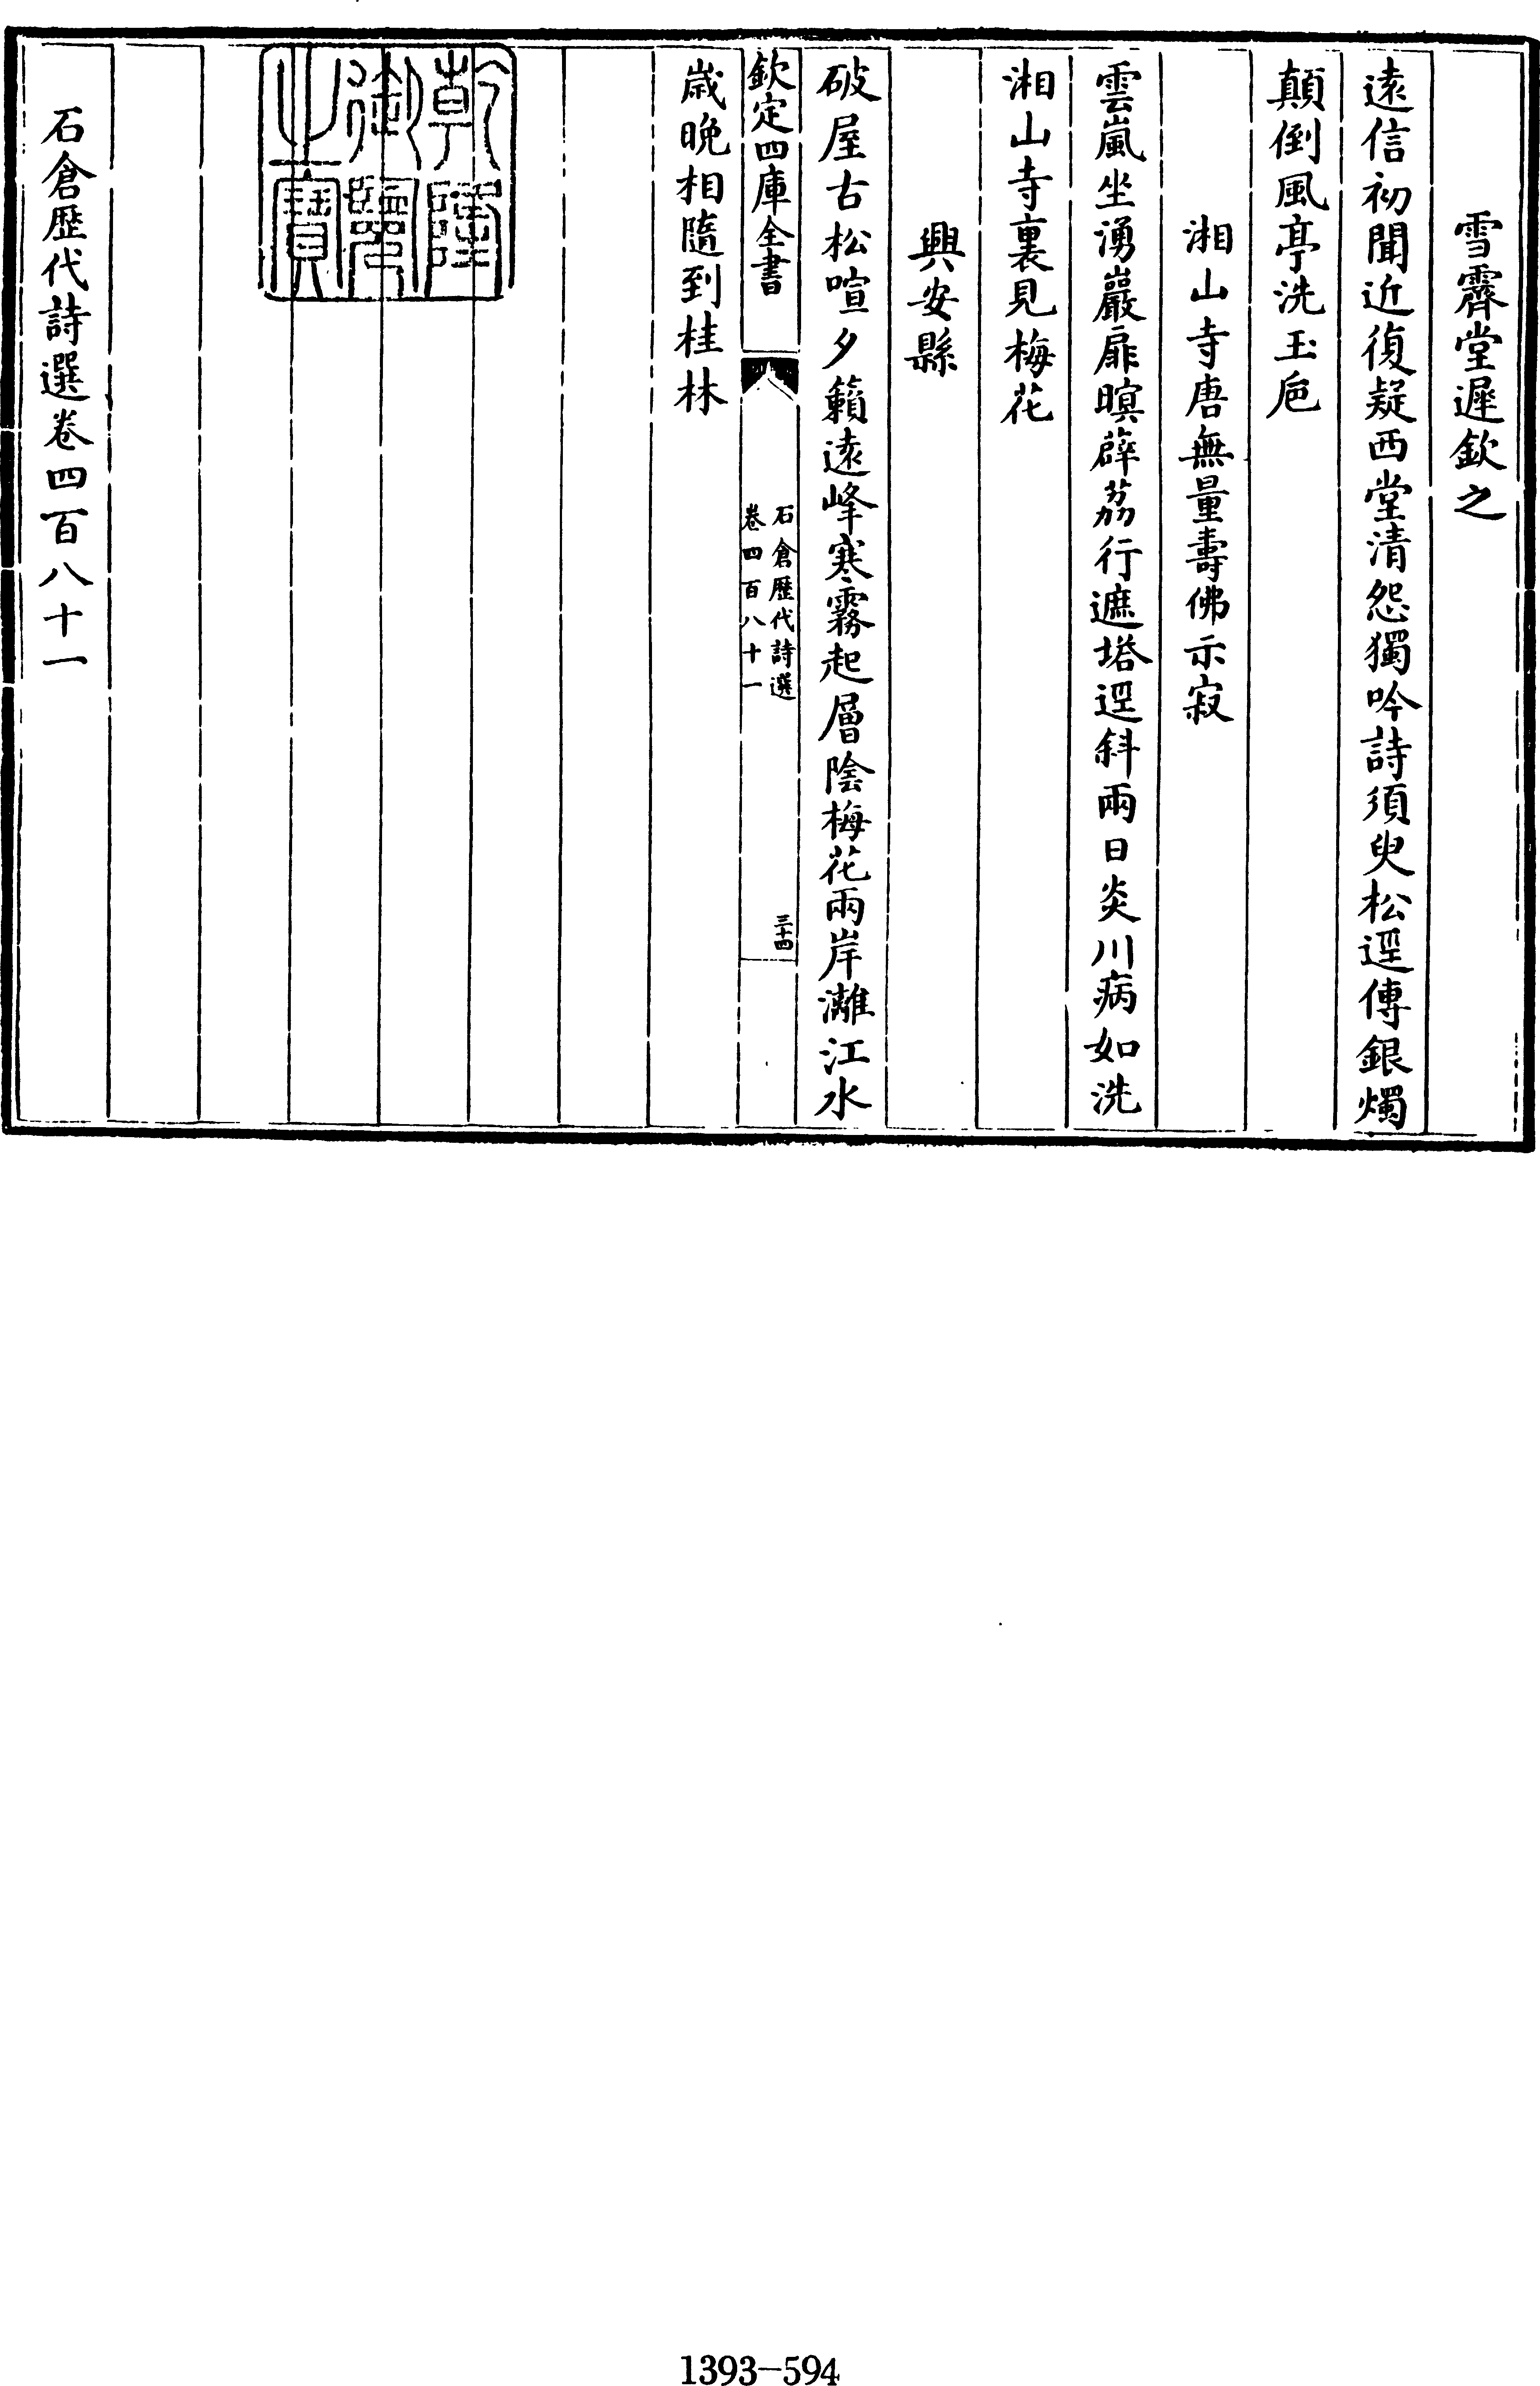 雪霽堂遲欽之
遠信初聞近復疑西堂清怨獨吟詩須臾松逕傳銀燭
顛倒風亭洗玉巵
湘山寺唐無量壽佛示寂
雲嵐坐湧巖扉暝薜荔行遮塔逕斜兩日炎川病如洗
湘山寺裏見梅花
興安縣
破屋古松喧夕籟遠峰寒霧起層陰梅花兩岸灕江水
欽定四庫全書
石倉歷代詩選
卷四百八十一
三十四
歳晚相隨到桂林
乾隆御覽之寶
石倉歷代詩選卷四百八十一
1393-594